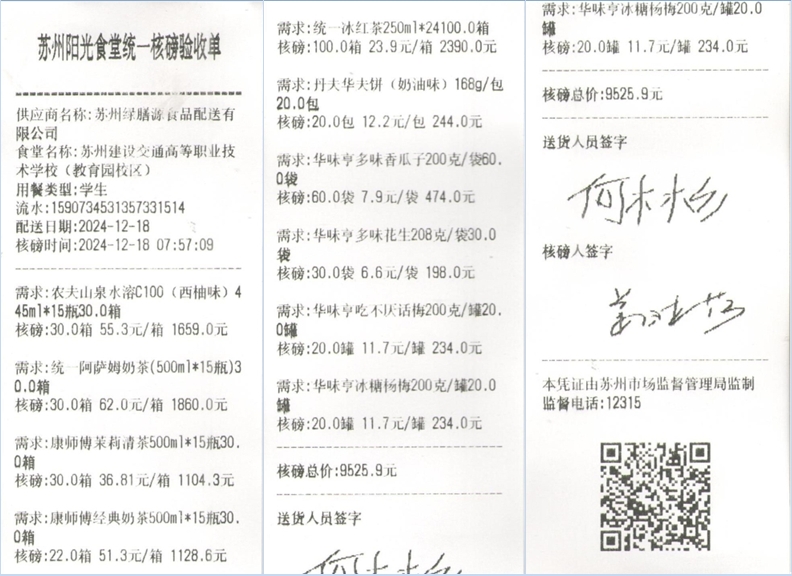 苏州阳光食堂统一核磅验收单
供应商名称:苏州绿膳源食品配送有
限公司
食堂名称:苏州建设交通高等职业技
术学校（教育园校区）
用餐类型:学生
流水:1590734531357331514
配送日期:2024-12-18
核磅时间:2024-12-18 07:57:09
需求:农夫山泉水溶C100（西柚味）4
45ml*15瓶30.0箱
核磅:30.0箱 55.3元/箱 1659.0元
需求:统一阿萨姆奶茶(500ml*15瓶)3
0.0箱
核磅:30.0箱 62.0元/箱 1860.0元
需求:康师傅茉莉清茶500ml*15瓶30.
0箱
核磅:30.0箱 36.81元/箱 1104.3元
需求:康师傅经典奶茶500ml*15瓶30.
0箱
核磅:22.0箱 51.3元/箱 1128.6元
需求:统一冰红茶250ml*24100.0箱
核磅:100.0箱 23.9元/箱 2390.0元
需求:丹夫华夫饼（奶油味）168g/包
20.0包
核磅:20.0包 12.2元/包 244.0元
需求:华味亨多味香瓜子200克/袋60.
0袋
核磅:60.0袋 7.9元/袋 474.0元
需求:华味亨多味花生208克/袋30.0
袋
核磅:30.0袋 6.6元/袋 198.0元
需求:华味亨吃不厌话梅200克/罐20.
0罐
核磅:20.0罐 11.7元/罐 234.0元
需求:华味亨冰糖杨梅200克/罐20.0
罐
核磅:20.0罐 11.7元/罐 234.0元
核磅总价:9525.9元
送货人员签字
需求:华味亨冰糖杨梅200克/罐20.0
罐
核磅:20.0罐 11.7元/罐 234.0元
核磅总价:9525.9元
送货人员签字
核磅人签字
本凭证由苏州市场监督管理局监制
监督电话:12315